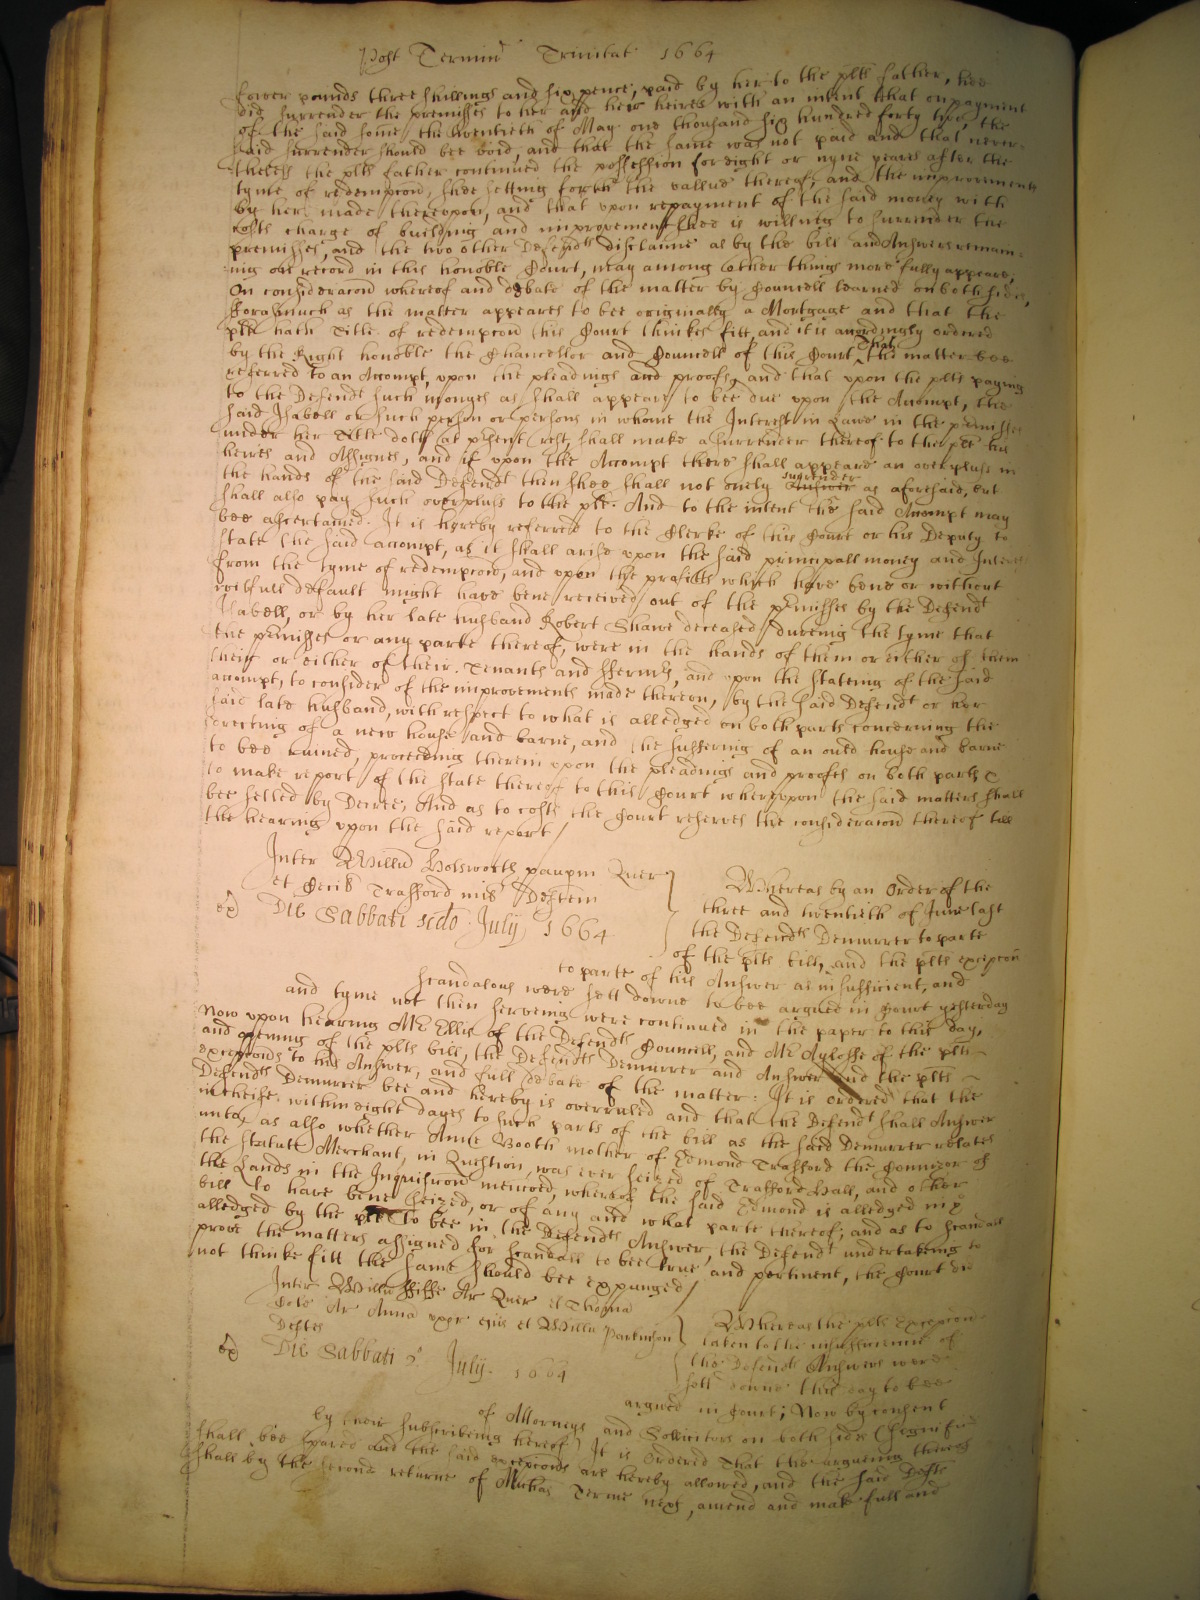 Post Termin Trinitat 1664
fower pounds three shillings and six pence, paid by her to the plts father, hee
did surrender the premisses to her and heir heires with an intent that on payment
of the said some the twentieth of May one thousand six hundred forty two, the
said surrender should bee void, and that the same was not paid and that never-
theless the plts father continued the possession for eight or nyne yeares after the
tyme of redempcon, shee setting forth the vallue thereof, and the improvements
by her made thereupon, and that upon repayment of the said money with
costs charge of building and improvement shee is willing to surrender the
premisses, and the two other Defendts disclaime as by the bill and Answers remain-
ing on record in this honoble Court, may among other things more fully appeare,
On consideracon whereof and debate of the matter by Councell learned on both sides,
Forasmuch as the matter appeares to bee originally a Mortgage and that the
plt hath Title of redempcon this Court thinkes fitt, and it is accordingly ordered
by the Right honoble the Chancellor and Councell of this Court That the matter bee
referred to an Accompt, upon the pleadings and proofes, and that upon the plts paying
to the Defendt such monyes as shall appeare to bee due upon the Accompt, the
said Isabell or such person or persons in whome the Interest in Lawe in the premisses
under her Title doth at psent rest, shall make a surrender thereof to the plt his
heires and Assignes, and if upon the Accompt there shall appeare an overpluss in
the hands of the said Defendt then shee shall not onely Answer surrender as aforesaid, but
shall also pay such overpluss to the plt. And to the intent the said Accompt may
bee ascertained. It is hereby referred to the Clerke of this Court or his Deputy to
state the said accompt, as it shall arise upon the said principall money and Interest
from the tyme of redempcon, and upon the profitts which have bene or without
willfull default might have bene received out of the pmisses by the Defendt
Isabell, or by her late husband Robert Shawe deceased dureing the tyme that
the pmisses or any parte thereof, were in the hands of them or either of them
their or either of their Tenants and ffermrs, and upon the stateing of the said
accompt, to consider of the improvements made thereon, by the said Defendt or her
said late husband, with respect to what is alledged on both parts concerning the
erecting of a new house and barne, and the suffering of an ould house and barne
to bee ruined, proceeding therein upon the pleadings and proofes on both parts &
to make report of the state thereof to this Court whereupon the said matters shall
bee setled by Decree, And as to costs the Court reserves the consideracon thereof till
the hearing upon the said report /
Inter Willm Holsworth paupm Quer
et Cecil Trafford mil Deftem
ex Die Sabbati scdo July 1664
Whereas by an Order of the
three and twentieth of June last
the Defendts Demurrer to parte
of the plts bill, and the plts excepcon
to parte of his Answer as insufficient, and
scandalous were sett downe to bee argued in Court yesterday
and tyme not then serveing were continued in the paper to this day,
Now upon hearing Mr Ellis of the Defendts Councell, and Mr Ayloffe of the plts
and opening of the plts bill, the Defendts Demurrer and Answer and the plts
excepcons to the Answer, and full debate of the matter: It is ordered that the
Defendts Demurrer bee and hereby is overruled and that the Defendt shall Answer
within eight dayes to such parts of the bill as the said Demurrer relates
unto, as also whether Anne Booth mother of Edmond Trafford the Connizor of
the Statute Merchant, in Question, was ever seized of Trafford Hall, and other
the Lands in the Inquisicon menconed, whereof the said Edmond is alledged in ye
bill to have bene seized, or of any and what parte thereof; and as to scandall
alledged by the plt To bee in the Defendts Answer, the Defendt undertakeing to
prove the matters assigned for scandall to bee true and pertinent, the Court did
not thinke fitt the same should bee expunged /
Inter Willm ffiffe Ar Quer et Thoma
Cole Ar Anna uxor eius et Willm Parkinson
Deftes
ex Die Sabbati 2o July. 1664
Whereas the plts excepcons
taken to the insufficiencie of
the Defendts Answers were
sett downe this day to bee
argued in Court; Now by consent
of Attorneys and Sollicitors on both sides (signified
by their subscribeing hereof) It is Ordered That the argueing thereof
shall bee spared and the said excepcons are hereby allowed, and the said Defts
shall by the second returne of Michas Terme next, amend and make full and